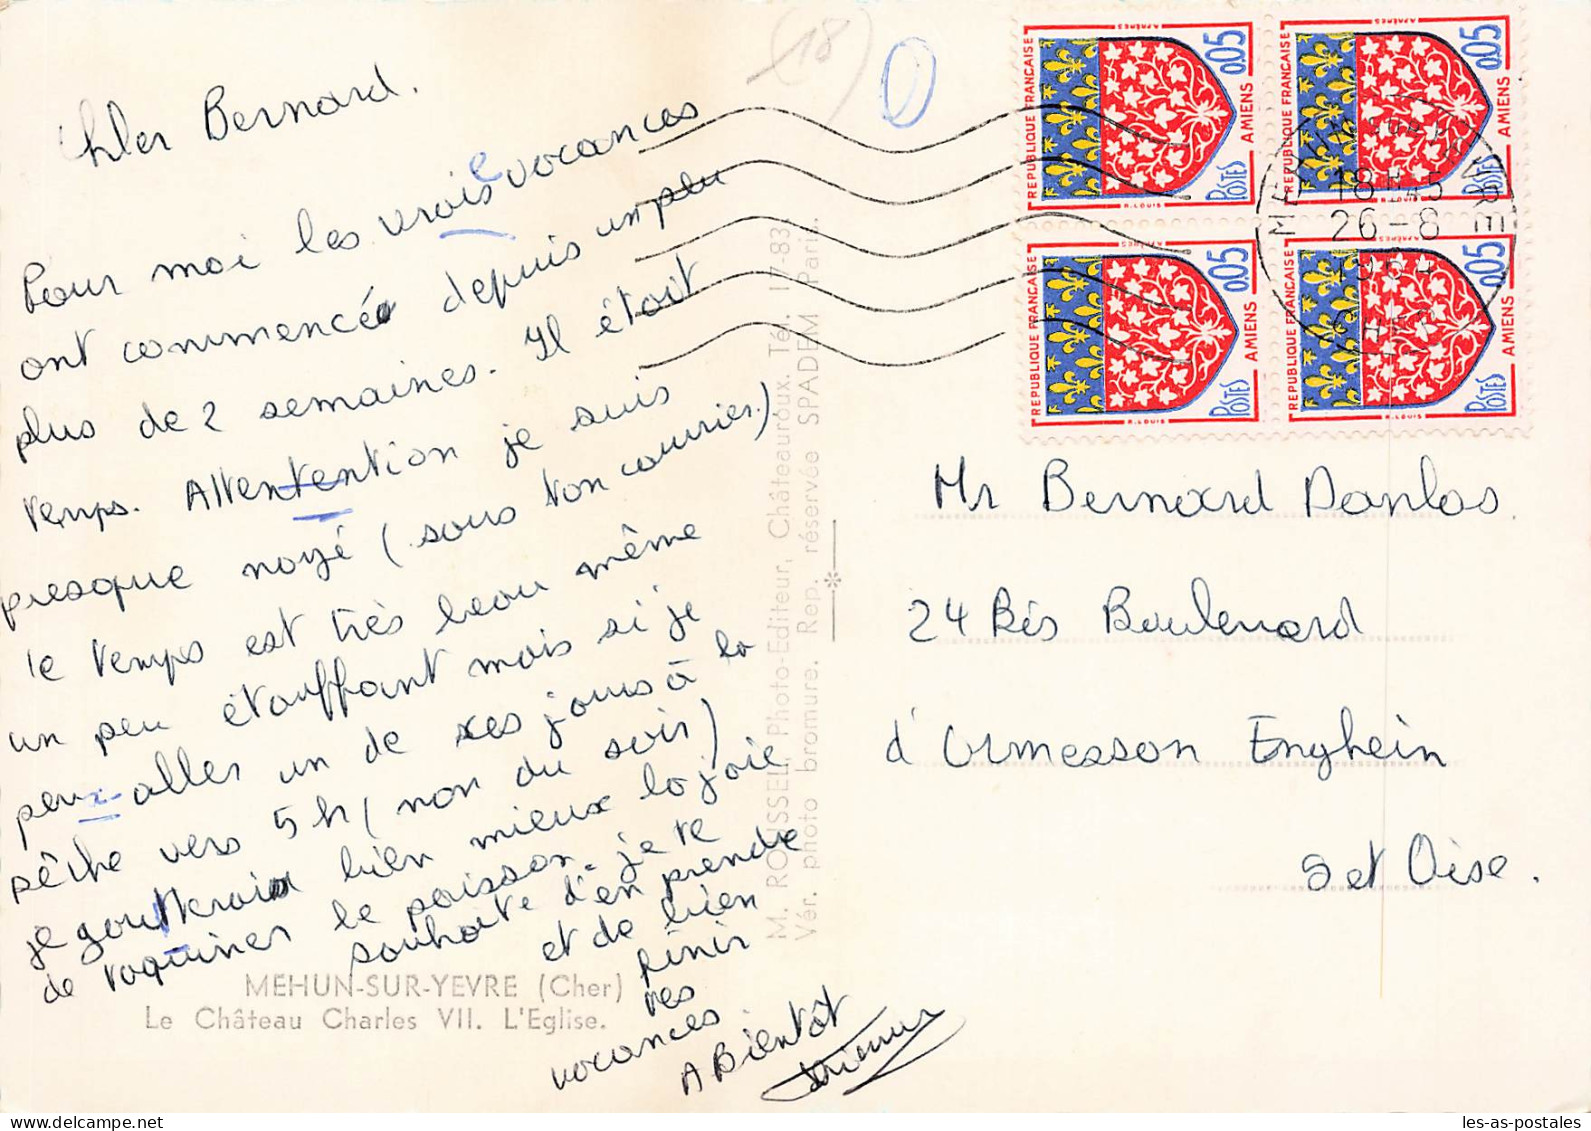 (18)
Cher Bernard.
Pour moi les vraies vacances
ont commencé depuis un peu
plus de 2 semaines. Il était
temps. Attentention je suis
presque noyé (sous ton courrier.)
le temps est très beau même
un peu étouffant mais si je
peux aller un de ces jours à la
pêche vers 5h (non du soir)
je goutterais bien mieux la joie
de taquiner le poisson. je te
souhaite d'en prendre
et de bien
finir
tes
vacances.
A Bientôt
MEHUN-SUR-YEVRE (Cher)
Le Château Charles VII. L'Eglise.
M. ROUSSEL, Photo-Editeur, Châteauroux. Tél. 17-83
Vér. photo bromure. Rep. réservée SPADEM Paris.
REPUBLIQUE FRANÇAISE
0,05
AMIENS
POSTES
R. LOUIS
REPUBLIQUE FRANÇAISE
0,05
AMIENS
POSTES
REPUBLIQUE FRANÇAISE
0,05
AMIENS
POSTES
R. LOUIS
REPUBLIQUE FRANÇAISE
0,05
AMIENS
POSTES
R. LOUIS
MEHUN SUR YEVRE
18H45
26-8
CHER
Mr Bernard Danlos
24 Bis Boulevard
d'Ormesson Enghein
S et Oise.
les-as-postales